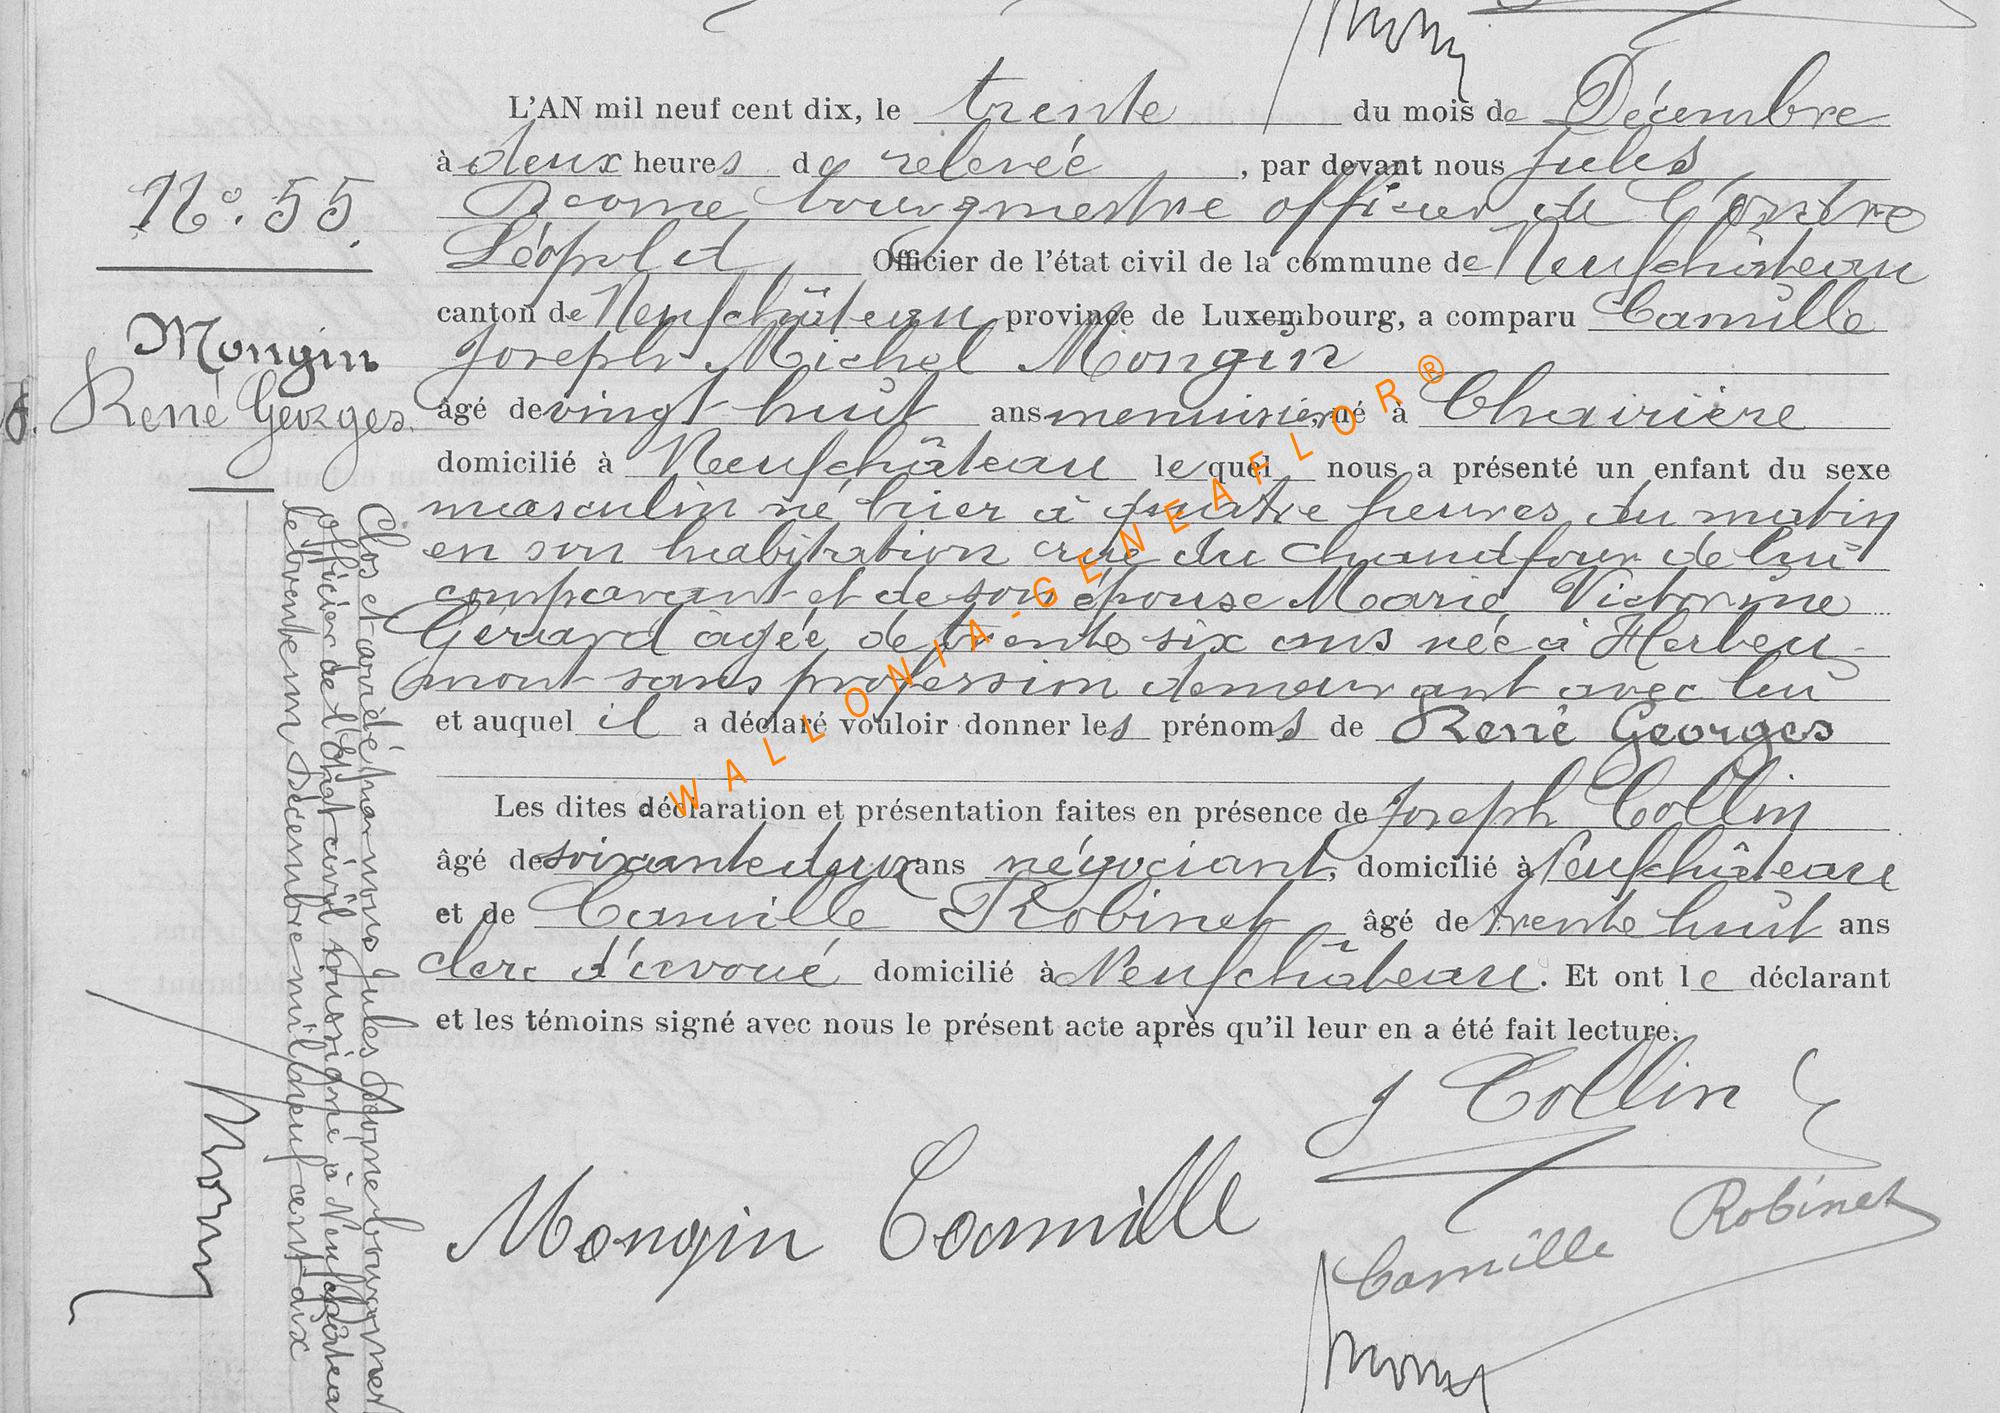 L'AN mil neuf cent dix, le trente du mois de Décembre
à deux heures de relevée, par devant nous Jules
bourgmestre officier de l'ordre
Léopold, Officier de l'état civil de la commune de Neufchâteau
canton de Neufchâteau province de Luxembourg, a comparu Camille
Joseph Michel Mongin
âgé de vingt huit ans menuisier, né à Chairière
domicilié à Neufchâteau lequel nous a présenté un enfant du sexe
masculin né hier à quatre heures du matin
en son habitation rue du Chaudfour de lui
comparant et de son épouse Marie Victorine
Gérard agée de trente six ans née à Herbeu-
mont sans profession demeurant avec lui
et auquel il a déclaré vouloir donner les prénoms de René Georges
Les dites déclaration et présentation faites en présence de Joseph Collin
âgé de soixante deux ans négociant, domicilié à Neufchâteau
et de Camille Robinet âgé de trente huit ans
clerc d'avoué domicilié à Neufchâteau. Et ont le déclarant
et les témoins signé avec nous le présent acte après qu'il leur en a été fait lecture.
J Collin
Mongin Camille
Camille Robinet
N° 55.
Mongin
René Georges.
Clos et arrêté par nous Jules bourgmestre
officier de l'Etat civil soussigné à Neufchâteau
le trente un Décembre mil neuf cent dix
WALLONIA-GENEAFLOR®